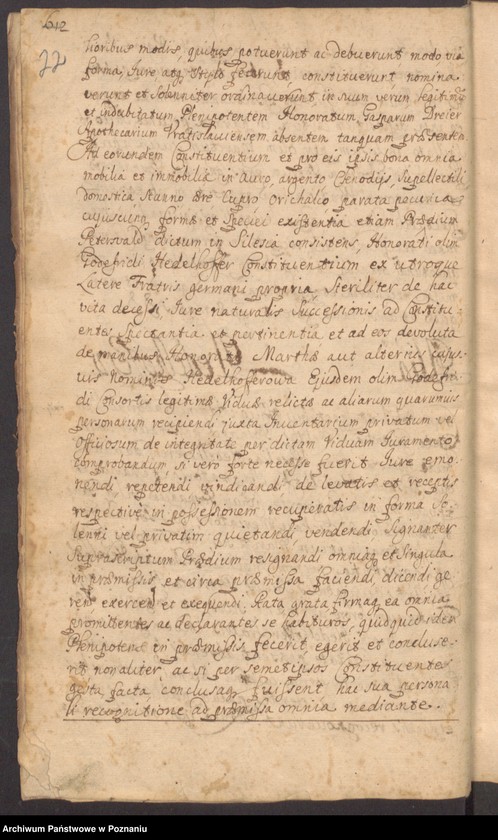 612
22
lioribus modis, quibus potuerunt ac debuerunt modo via
forma, Jure atq; stylo fecerunt, constituerunt nomina-
verunt et Solenniter ordinaverunt, in suum verum legitimu
et indubitatum Plenipotentem Honoratum Gasparum Dreier
Apothecarium Vratislaviensem absentem tanquam præsentem
Ad eorundem Constituentium et pro eis ipsis bona omnia
mobilia et immobilia in Auro, argento Clenodijs, Supellectili
domestica, Stanno Ære Cupro Orichalco parata pecunia
cujuscunq; formæ et Speciei existentia etiam Prædium
Petersvald dictum in Silesia consistens, Honorati olim
Godefridi Hedelhoffer Constituentium ex utroque
Latere Fratris germani propria Steriliter de hac
vita decessi Jure naturalis Successionis ad Constitu-
entes Spectantia et pertinentia et ad eos devoluta
de manibus Honoratæ Marthæ aut alterius cujus-
vis nominis Hedelhofferowa Ejusdem olim Godefri-
di Consortis legitimæ Viduæ relictæ ac aliarum quarumvis
personarum recipiendi juxta Inventarium privatum vel
officiosum de integritate per dictam Viduam Juramento
comprobandum, si vero forte necesse fuerit Jure
nendi repetendi vindicandi de levatis et receptis
respective in possessionem recuperatis in forma So-
lenti vel privatim quietandi vendendi Signanter
Suprascriptum Prædium resignandi omniaq; et Singula
in præmissis et circa præmissa faciendi, dicendi ge-
rendi exercendi et exequendi. Rata grata firmaq; ea omnia
promittentes ac declarantes se habituros, quidquid idem
Plenipotens in præmissis fecerit egerit et concluse-
rit non aliter ac si per semetipsos Constituentes
gesta facta conclusaq; fuissent hac sua persona-
li recognitione ad præmissa omnia mediante.
Archiwum Państwowe w Poznaniu